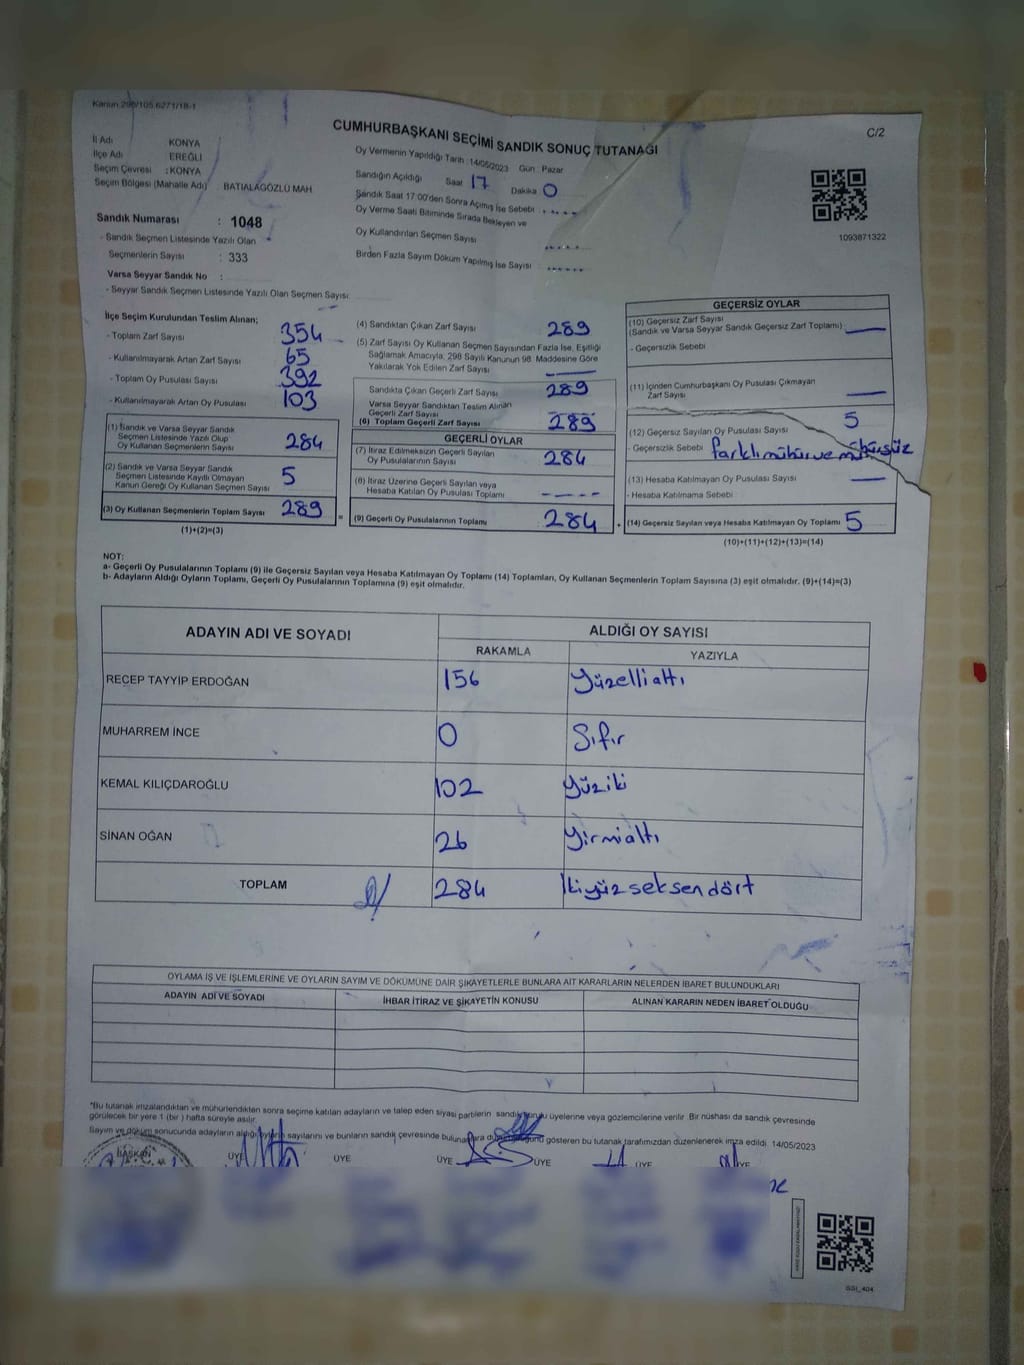 Kanun 298/105,6271/18-1
C/2
CUMHURBAŞKANI SEÇİMİ SANDIK SONUÇ TUTANAĞI
İl Adı KONYA
İlçe Adı EREĞLİ
Seçim Çevresi : KONYA
Seçim Bölgesi (Mahalle Adı) BATIALAGÖZLÜ MAH
Sandık Numarası : 1048
- Sandık Seçmen Listesinde Yazılı Olan
Seçmenlerin Sayısı : 333
Varsa Seyyar Sandık No :
- Seyyar Sandık Seçmen Listesinde Yazılı Olan Seçmen Sayısı
Oy Vermenin Yapıldığı Tarih : 14/05/2023 Gün : Pazar
Sandığın Açıldığı Saat 17 Dakika 0
Sandık Saat 17:00'den Sonra Açılmış İse Sebebi
Oy Verme Saati Bitiminde Sırada Bekleyen ve
Oy Kullandırılan Seçmen Sayısı
Birden Fazla Sayım Döküm Yapılmış İse Sayısı
1093871322
İlçe Seçim Kurulundan Teslim Alınan;
- Toplam Zarf Sayısı 354
- Kullanılmayarak Artan Zarf Sayısı 65
- Toplam Oy Pusulası Sayısı 392
- Kullanılmayarak Artan Oy Pusulası 103
(1) Sandık ve Varsa Seyyar Sandık
Seçmen Listesinde Yazılı Olup
Oy Kullanan Seçmenlerin Sayısı 284
(2) Sandık ve Varsa Seyyar Sandık
Seçmen Listesinde Kayıtlı Olmayan
Kanun Gereği Oy Kullanan Seçmen Sayısı 5
(3) Oy Kullanan Seçmenlerin Toplam Sayısı 289
(1)+(2)=(3)
(4) Sandıktan Çıkan Zarf Sayısı 289
(5) Zarf Sayısı Oy Kullanan Seçmen Sayısından Fazla İse, Eşitliği
Sağlamak Amacıyla, 298 Sayılı Kanunun 98. Maddesine Göre
Yakılarak Yok Edilen Zarf Sayısı
Sandıkta Çıkan Geçerli Zarf Sayısı 289
Varsa Seyyar Sandıktan Teslim Alınan
Geçerli Zarf Sayısı
(6) Toplam Geçerli Zarf Sayısı 289
GEÇERLİ OYLAR
(7) İtiraz Edilmeksizin Geçerli Sayılan
Oy Pusulalarının Sayısı 284
(8) İtiraz Üzerine Geçerli Sayılan veya
Hesaba Katılan Oy Pusulası Toplamı
(9) Geçerli Oy Pusulalarının Toplamı 284
GEÇERSİZ OYLAR
(10) Geçersiz Zarf Sayısı
(Sandık ve Varsa Seyyar Sandık Geçersiz Zarf Toplamı)
- Geçersizlik Sebebi
(11) İçinden Cumhurbaşkanı Oy Pusulası Çıkmayan
Zarf Sayısı
(12) Geçersiz Sayılan Oy Pusulası Sayısı 5
- Geçersizlik Sebebi farklı mühür ve mühürsüz
(13) Hesaba Katılmayan Oy Pusulası Sayısı
- Hesaba Katılmama Sebebi
(14) Geçersiz Sayılan veya Hesaba Katılmayan Oy Toplamı 5
(10)+(11)+(12)+(13)=(14)
NOT:
a- Geçerli Oy Pusulalarının Toplamı (9) ile Geçersiz Sayılan veya Hesaba Katılmayan Oy Toplamı (14) Toplamları, Oy Kullanan Seçmenlerin Toplam Sayısına (3) eşit olmalıdır. (9)+(14)=(3)
b- Adayların Aldığı Oyların Toplamı, Geçerli Oy Pusulalarının Toplamına (9) eşit olmalıdır.
ADAYIN ADI VE SOYADI ALDIĞI OY SAYISI
RAKAMLA YAZIYLA
RECEP TAYYİP ERDOĞAN 156 Yüzellialtı
MUHARREM İNCE 0 Sıfır
KEMAL KILIÇDAROĞLU 102 Yüziki
SİNAN OĞAN 26 Yirmialtı
TOPLAM 284 İkiyüzseksendört
OYLAMA İŞ VE İŞLEMLERİNE VE OYLARIN SAYIM VE DÖKÜMÜNE DAİR ŞİKAYETLERLE BUNLARA AİT KARARLARIN NELERDEN İBARET BULUNDUKLARI
ADAYIN ADI VE SOYADI İHBAR İTİRAZ VE ŞİKAYETİN KONUSU ALINAN KARARIN NEDEN İBARET OLDUĞU
*Bu tutanak imzalandıktan ve mühürlendikten sonra seçime katılan adayların ve talep eden siyasi partilerin sandık kurulu üyelerine veya gözlemcilerine verilir. Bir nüshası da sandık çevresinde
görülecek bir yere 1 (bir) hafta süreyle asılır.
Sayım ve döküm sonucunda adayların aldığı oyların sayılarını ve bunların sandık çevresinde bulunanlara duyurulduğunu gösteren bu tutanak tarafımızdan düzenlenerek imza edildi. 14/05/2023
BAŞKAN ÜYE ÜYE ÜYE ÜYE ÜYE ÜYE